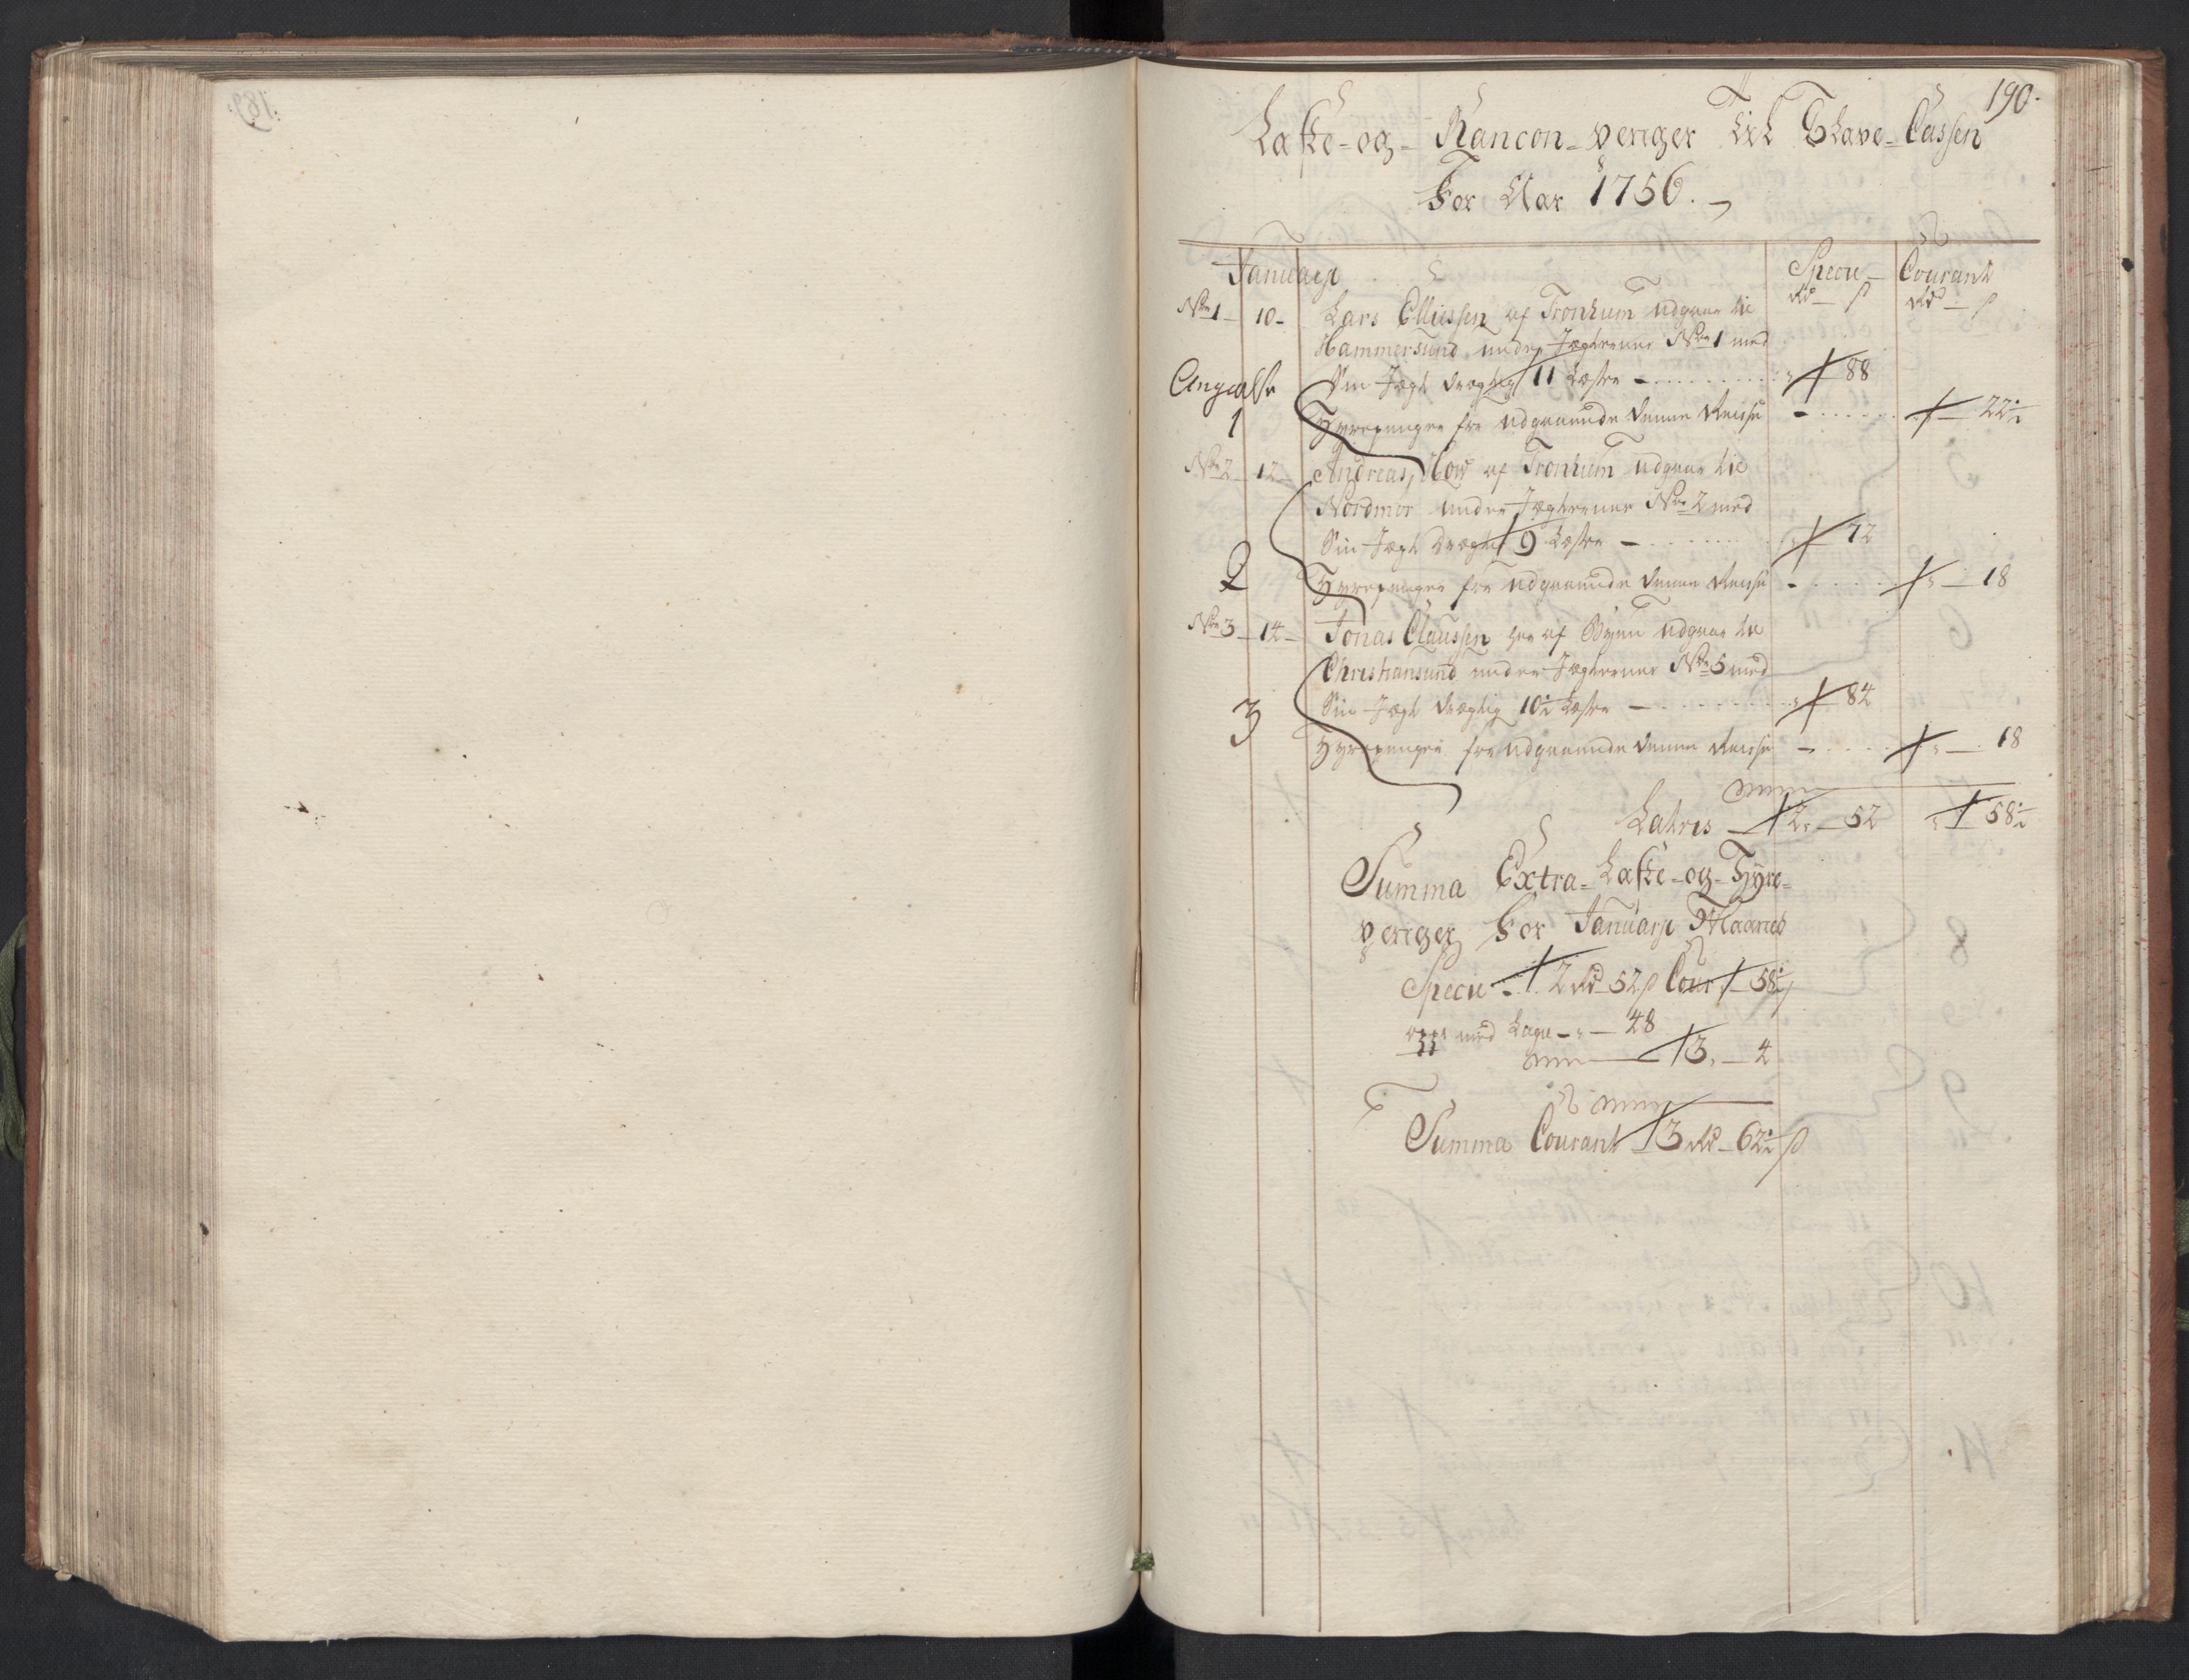 190.
Laste-og-Rancon-penger Til Slave-Cassen
For Aar 1756.
Januarii Specie Courant
Rd ß Rd ß
No 1 10 Lars Ellissen af Tronhiem udgaar til
Hammersund under Jægternes No 1 med
Angivelse Sin Jægt drægtig 11 Læster 88
1 Hyrepenger for udgaaende denne Reise 22½
No 2 12 Andreas How af Tronhiem udgaar til
Nordmør under Jægternes No 2 med
Sin Jægt drægtig 9 Læster 72
2 Hyrepenger for udgaaende denne Reise 18
No 3 14 Jonas Claussen her af Byen udgaar til
Christiansund under Jægternes No 5 med
Sin Jægt drægtig 10½ Læster 84
3 Hyrepenger for udgaaende denne Reise 18
Lateris 2 52 58½
Summa Extra-Laste-og-Hyre-
penger For Januarii Maaned
Specie 2 Rd 52 ß Cour 58½ ß
med Lage 48
3 4
Summa Courant 3 Rd 62½ ß